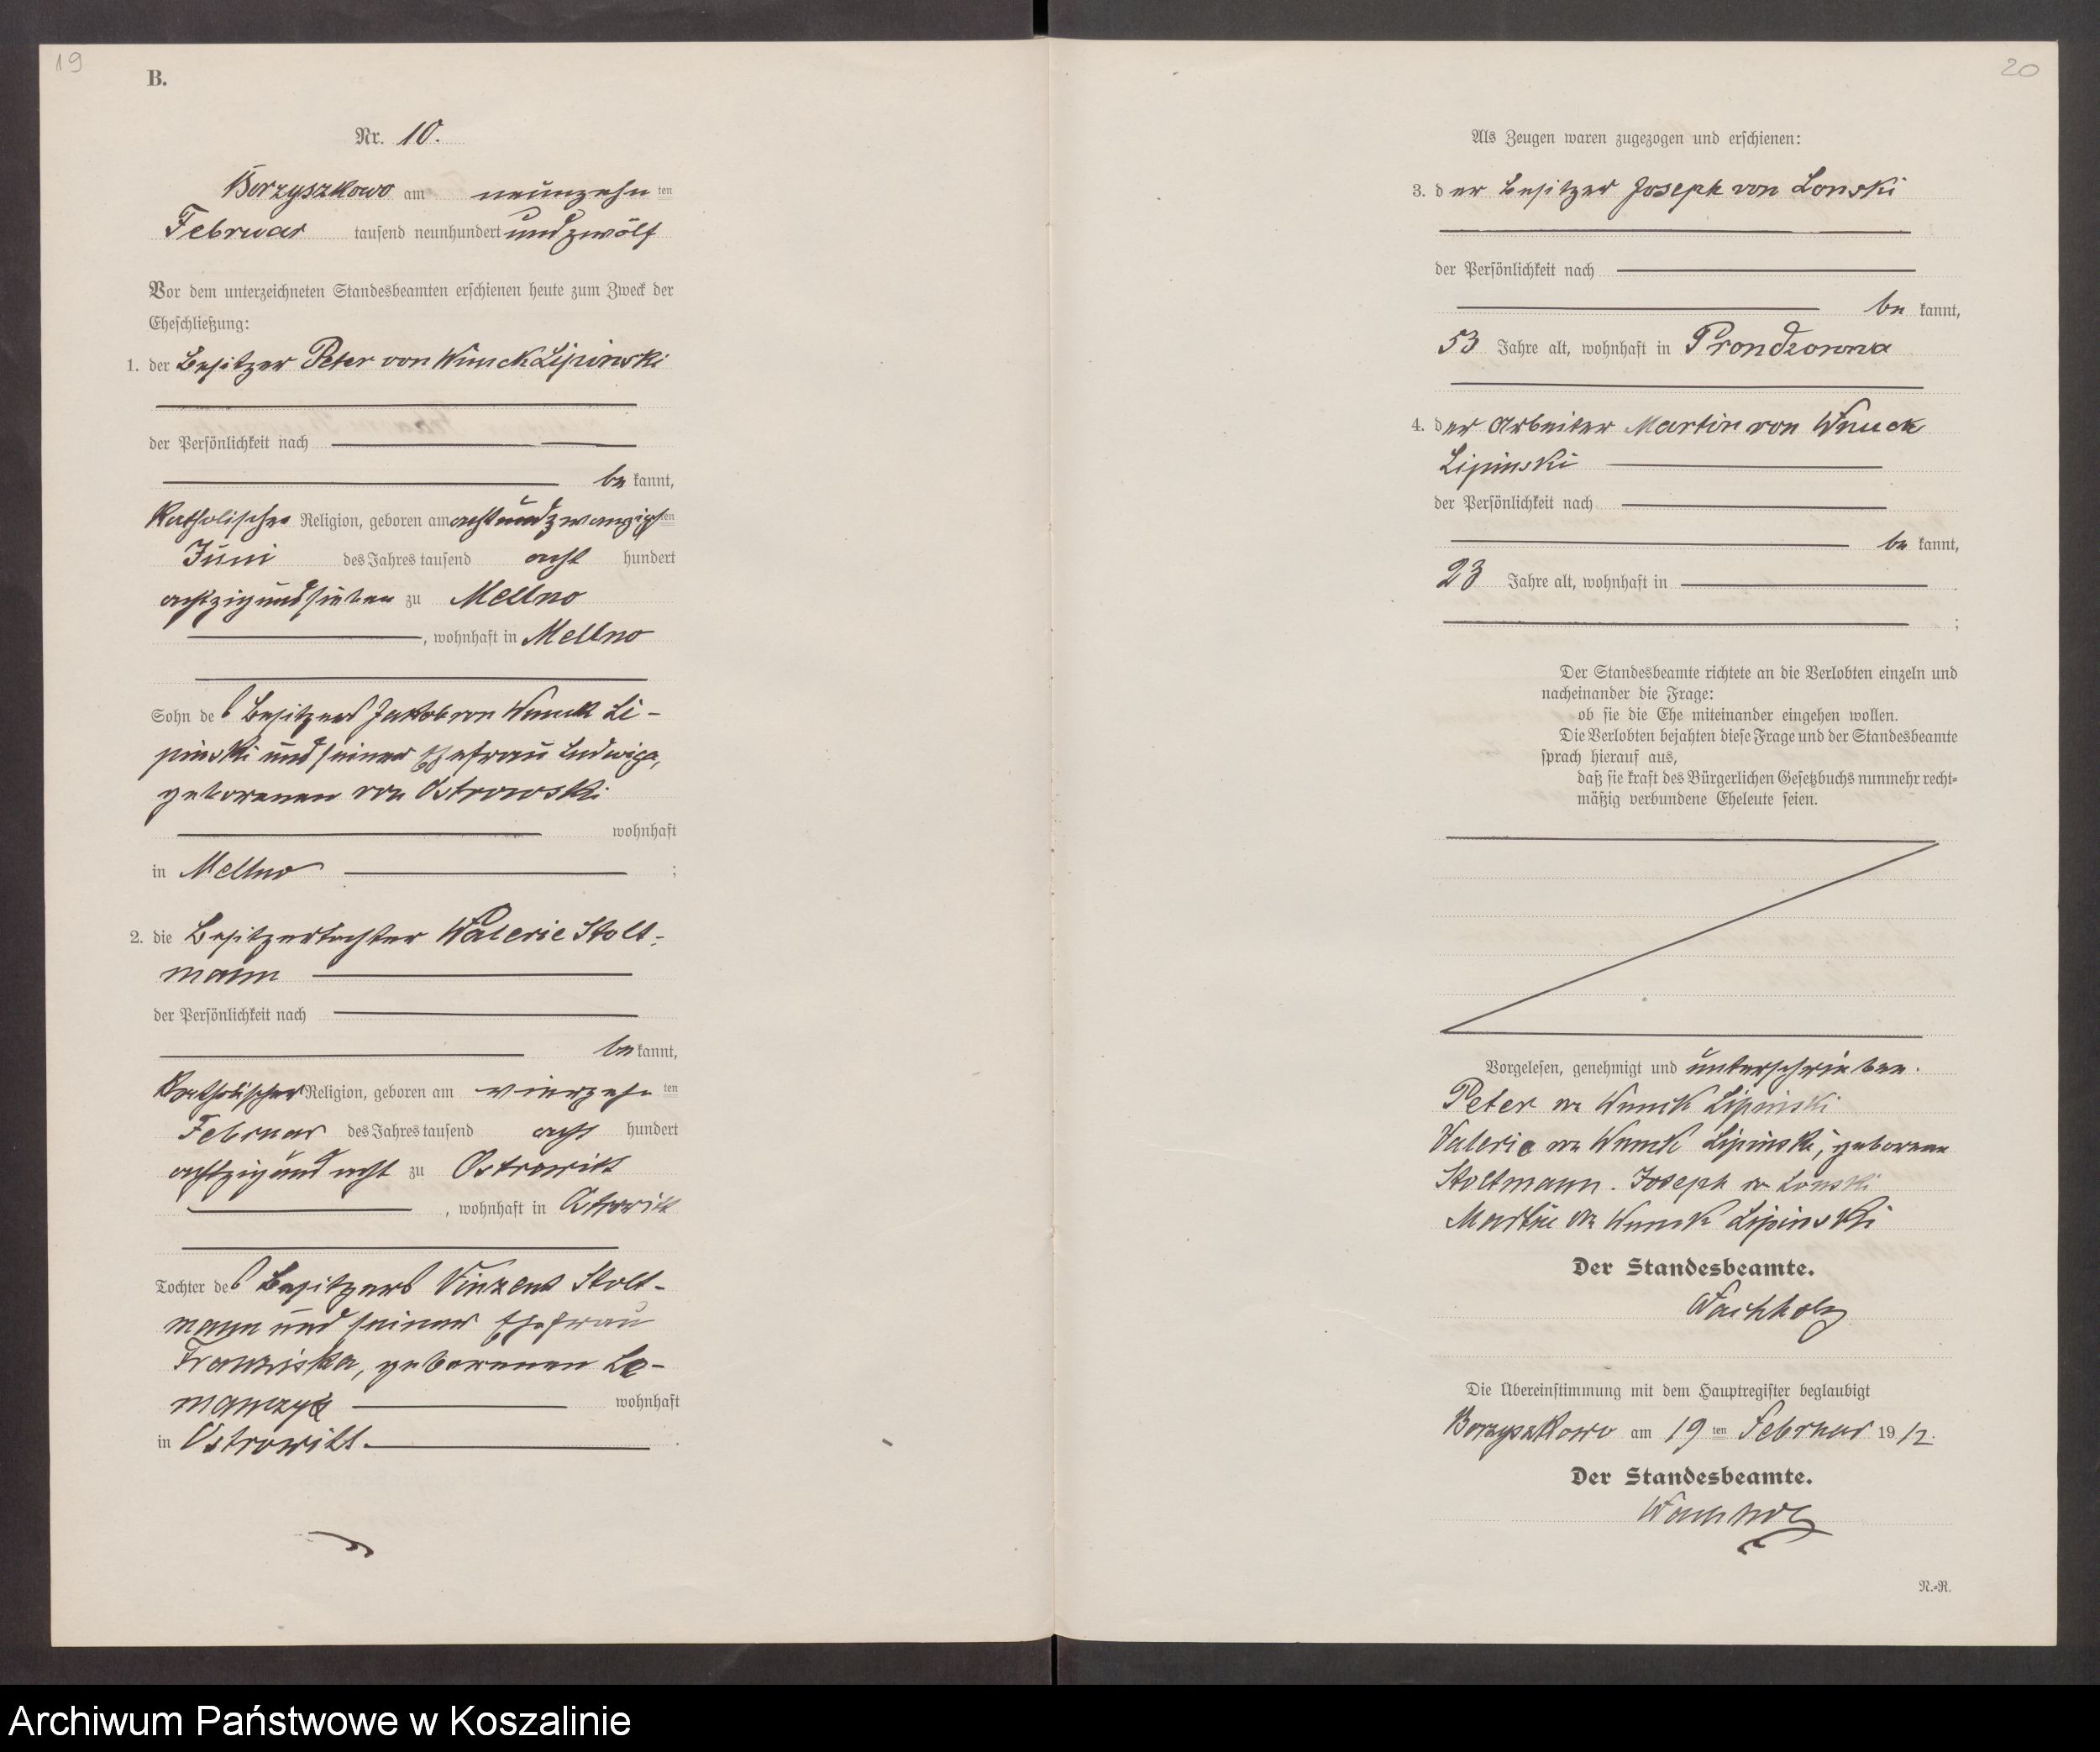 19
B.
Nr. 10.
Borzyszkowo am neunzehn ten
Februar tausend neunhundert und zwölf
Vor dem unterzeichneten Standesbeamten erschienen heute zum Zweck der
Eheschließung:
1. der Besitzer Peter von Wnuck Lipinski
der Persönlichkeit nach
be kannt,
katholischer Religion, geboren am achtundzwanzigsten
Juni des Jahres tausend acht hundert
achtzig und sieben zu Mellno
, wohnhaft in Mellno
Sohn des Besitzers Jakob von Wnuck Li-
pinski und seiner Ehefrau Ludwiga,
geborenen von Ostrowski
wohnhaft
in Mellno ;
2. die Besitzertochter Valerie Stolt-
mann
der Persönlichkeit nach
be kannt,
katholischer Religion, geboren am vierzehn ten
Februar des Jahres tausend acht hundert
achtzig und acht zu Ostrowitt
, wohnhaft in Ostrowitt
Tochter des Besitzers Vinzent Stolt-
mann und seiner Ehefrau
Franziska, geborenen
wohnhaft
in Ostrowitt.
20
Als Zeugen waren zugezogen und erschienen:
3. der Besitzer Joseph von Lonski
der Persönlichkeit nach
be kannt,
53 Jahre alt, wohnhaft in Prondzonna
4. der Arbeiter Martin von Wnuck
Lipinski
der Persönlichkeit nach
be kannt,
23 Jahre alt, wohnhaft in
;
Der Standesbeamte richtete an die Verlobten einzeln und
nacheinander die Frage:
ob sie die Ehe miteinander eingehen wollen.
Die Verlobten bejahten diese Frage und der Standesbeamte
sprach hierauf aus,
daß sie kraft des Bürgerlichen Gesetzbuchs nunmehr recht=
mäßig verbundene Eheleute seien.
Vorgelesen, genehmigt und unterschrieben.
Peter von Wnuck Lipinski
Valerie von Wnuck Lipinski, geborene
Stoltmann. Joseph von Lonski
Martin von Wnuck Lipinski
Der Standesbeamte.
Wachholz
Die Übereinstimmung mit dem Hauptregister beglaubigt
Borzyszkowo am 19 ten Februar 19 12.
Der Standesbeamte.
Wachholz
N.=R.
Archiwum Państwowe w Koszalinie